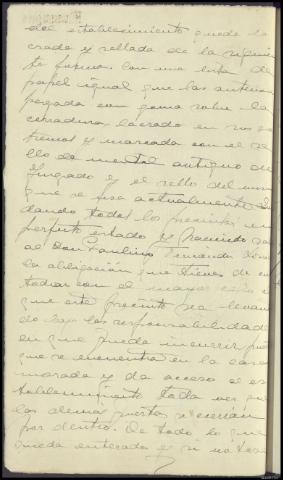 del establecimiento queda la
crada y sellada de la siguien
te forma: con una lista de
papel igual que las anterior
pegada con goma sobre la
cerradura lacrado en sus ex
tremos y marcada con el se
llo de metal antiguo del
Juzgado y el sello del mismo
que se usa actualmente que
dando todos los precintos en
perfecto estado y haciendo
al Don Paulino Fernández
la obligación que tiene de cus
todiar con el mayor celo
que este precinto sea levan
do bajo las responsabilidades
en que pueda incurrir pues
que se encuentra en la casa
morada y da acceso al es
tablecimiento toda vez que
las demas puertas se cierran
por dentro. De todo lo que
queda enterado y si no